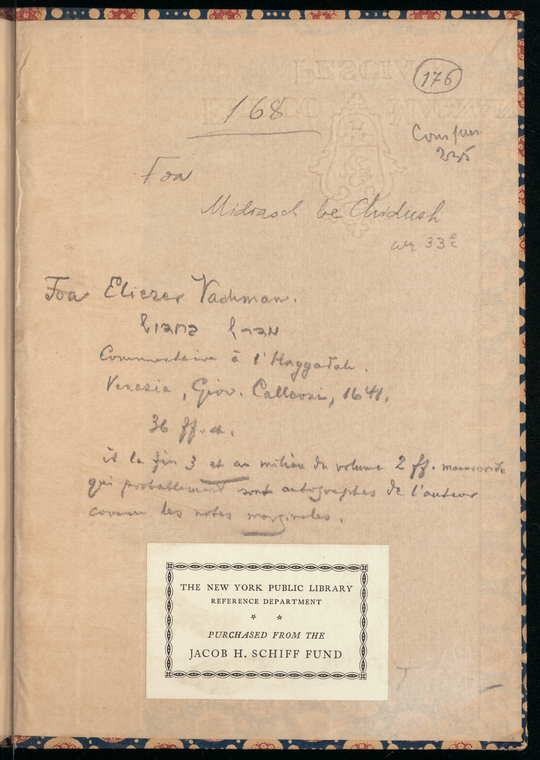 176
168
Foa
Midrasch be Chidush
Foa Eliezer Nachman.
Commentaire à l'Haggadah.
Venezia, Giov. Calleoni, 1641.
36 ff.
à la fin 3 et au milieu du volume 2 ff. manuscrits
qui probablement sont autographes de l'auteur
comme les notes marginales.
THE NEW YORK PUBLIC LIBRARY
REFERENCE DEPARTMENT
PURCHASED FROM THE
JACOB H. SCHIFF FUND